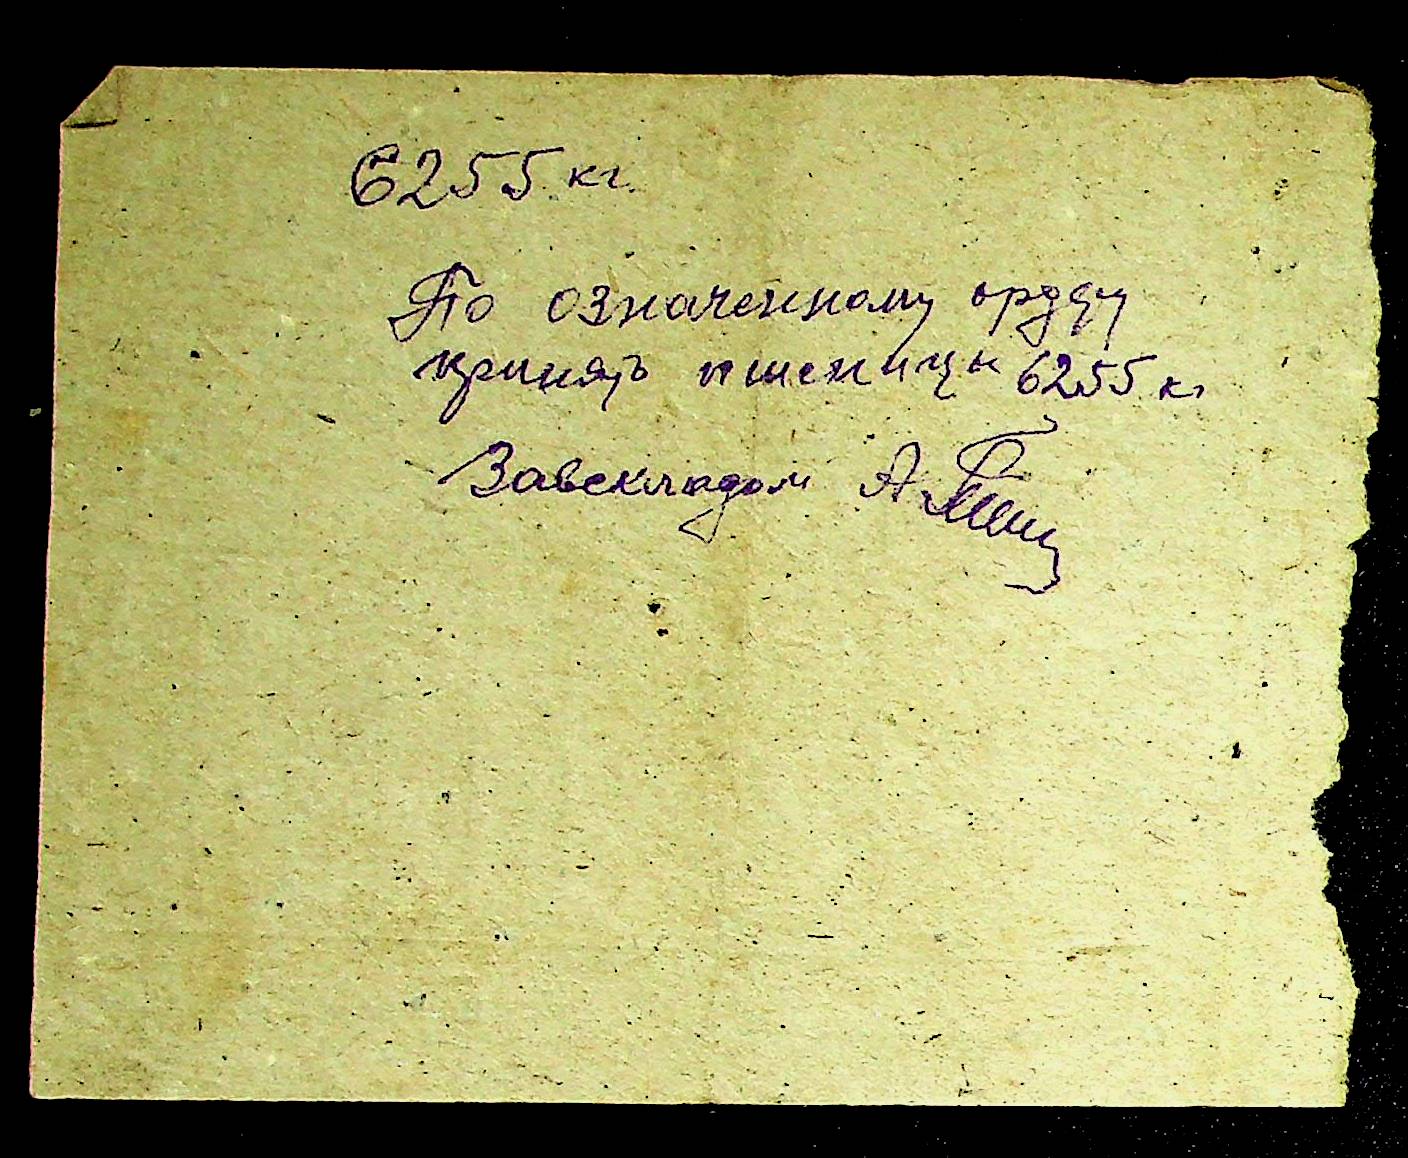 6255 кг.
По означенному ордеру
принять пшеницы 6255 кг
Завскладом А.